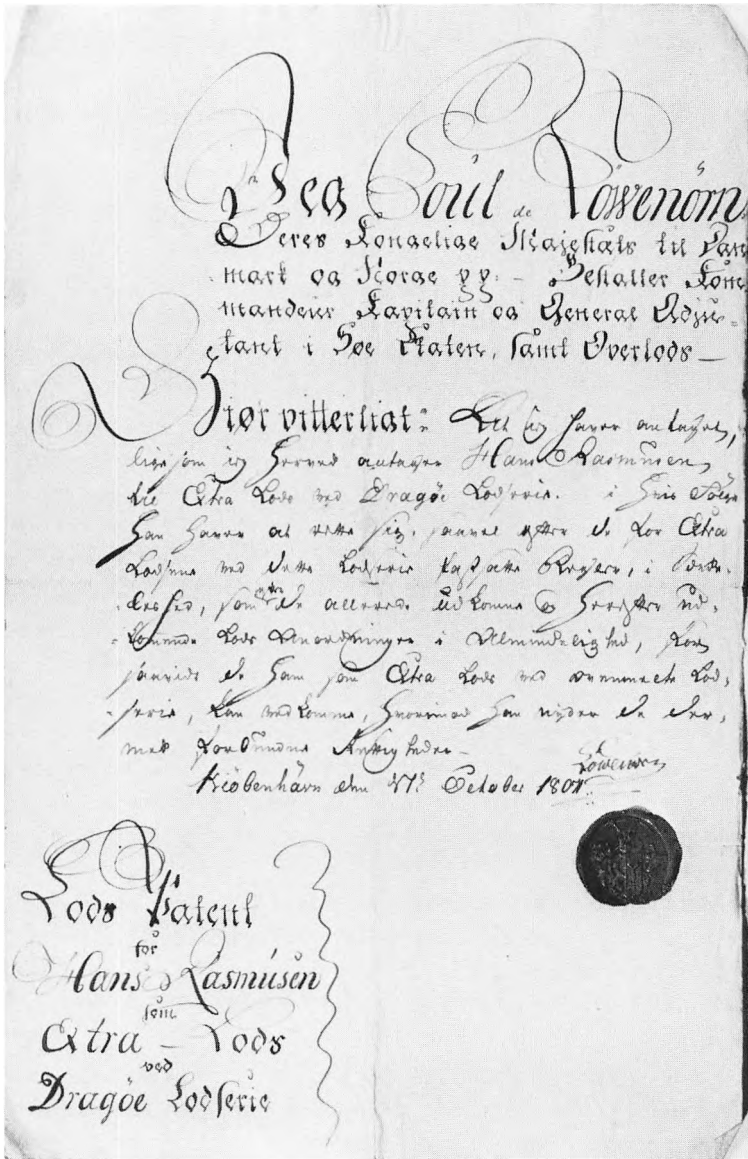 Jeg Poul de Löwenörn
Deres Kongelige Majestæts til Dan
mark og Norge pp. – Bestalter Kom
mandeur Kapitain og General Adju-
tant i Søe Etaten, samt Overlods –
Giør vitterligt: At jeg haver antaget,
ligesom jeg herved antager Hans Rasmusen
til Extra Lods ved Dragøe Lodserie. i hvis Følge
han haver at rette sig, saavel efter de for Extra
Lodsene ved dette Lodserie fastsatte Regler, i Særde-
leshed, som efter de allerede udkomne og herefter ud-
kommende Lods Anordninger i Almindelighed, for
saavidt de ham som Extra Lods ved ovennævnte Lod-
serie, kan vedkomme, hvorimod han nyder de der-
med forbundne Rettigheder –
Kiöbenhavn den October
Löwenörn
Lods Patent
for
Hans Rasmusen
som
Extra – Lods
ved
Dragøe Lodserie